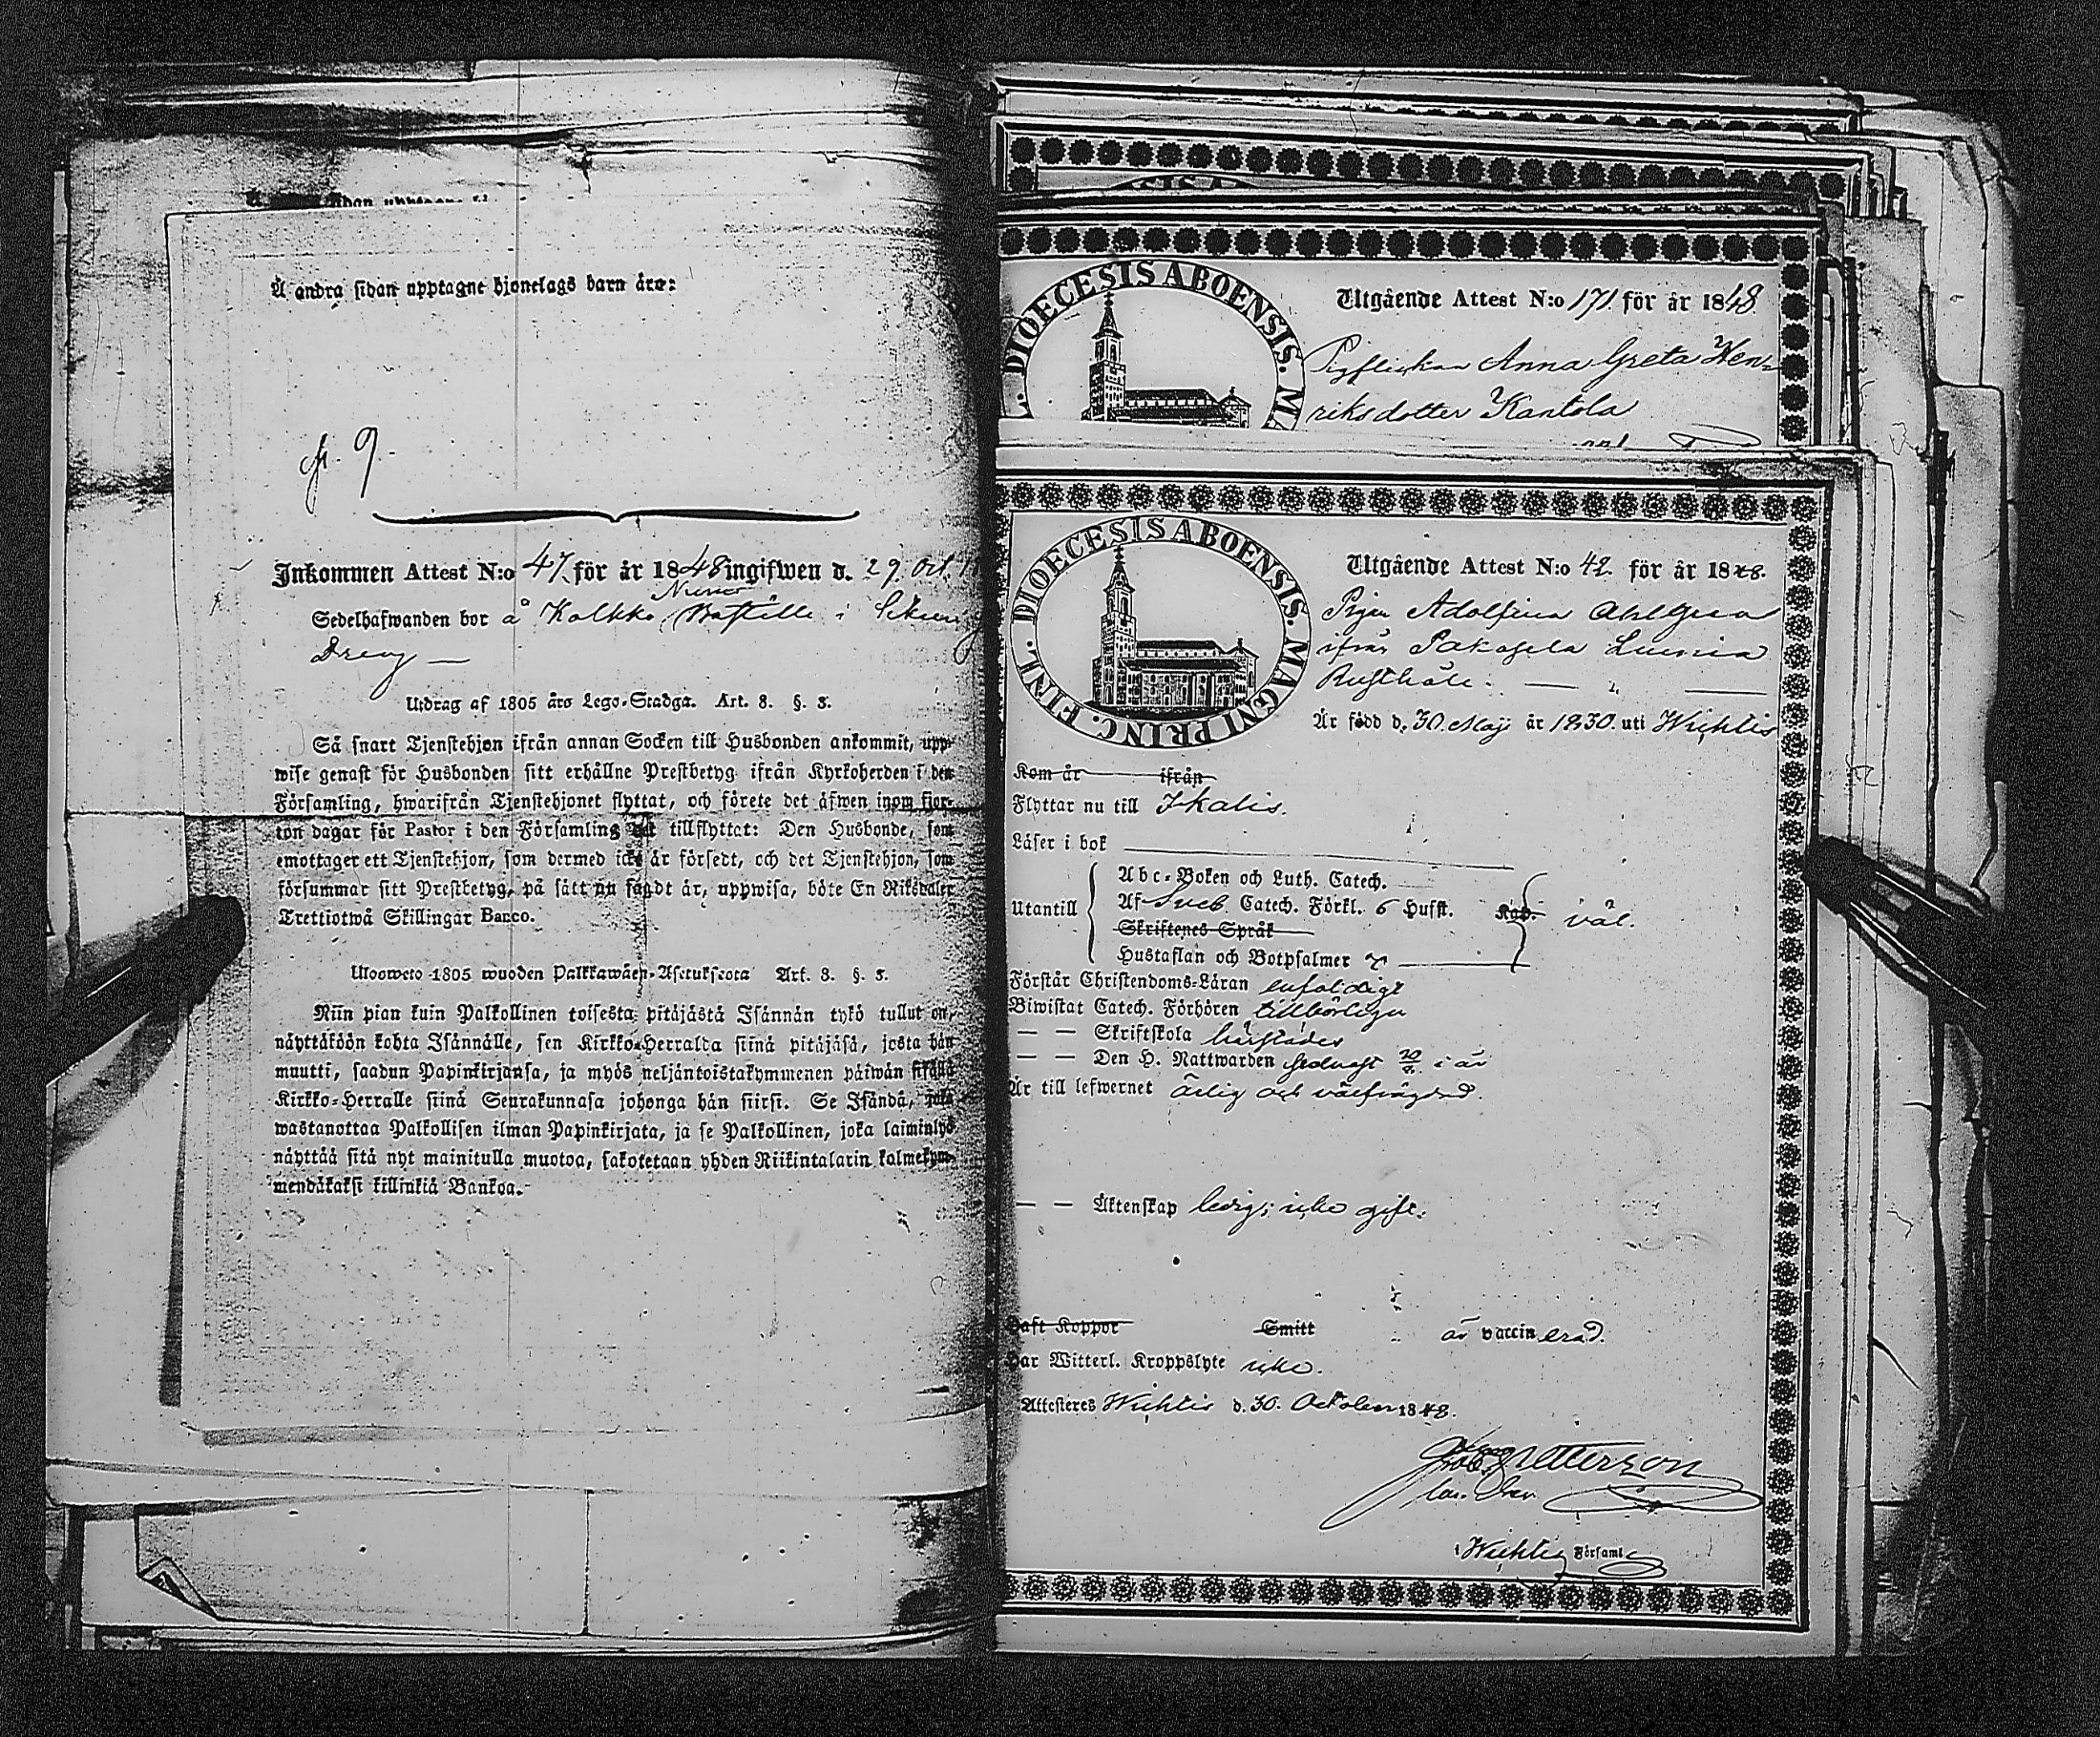 Å andra sidan upptagne hjonelags barn äro:
9.
Inkommen Attest N:o 47. för år 1848 ingifwen d. 29. Oct.
Sedelhafwanden bor å Kolkko
Dreng —
Utdrag af 1805 års Lego-Stadga. Art. 8. §. 3.
Så snart Tjenstehjon ifrån annan Socken till Husbonden ankommit, upp-
wise genast för Husbonden sitt erhållne Prestbetyg ifrån Kyrkoherden i den
Församling, hwarifrån Tjenstehjonet flyttat, och förete det äfwen inom fjor-
ton dagar för Pastor i den Församling det tillflyttat: Den Husbonde, som
emottager ett Tjenstehjon, som dermed icke är försedt, och det Tjenstehjon, som
försummar sitt Prestbetyg, på sätt nu sagdt är, uppwisa, böte En Riksdaler
Trettiotwå Skillingar Banco.
Uloosweto 1805 wuoden Palkkawäen-Asetuksesta Art. 8. §. 3.
Niin pian kuin Palkollinen toisesta pitäjästä Isännän tykö tullut on,
näyttäköön kohta Isännälle, sen Kirkko-Herralta siinä pitäjäsä, josta hän
muutti, saadun Papinkirjansa, ja myös neljäntoistakymmenen päiwän sisällä
Kirkko-Herralle siinä Seurakunnasa johonga hän siirsi. Se Isändä, joka
wastanottaa Palkollisen ilman Papinkirjata, ja se Palkollinen, joka laiminlyö
näyttää sitä nyt mainitulla muotoa, sakotetaan yhden Riikintalarin kolmekym-
mendäkaksi killinkiä Bankoa.
DIOECESIS ABOENSIS. MA
Utgående Attest N:o 171. för år 1848.
Pigflickan Anna Greta Hen-
riksdotter Kantola
DIOECESIS ABOENSIS. MAGNI PRINC. FINL.
Utgående Attest N:o 42. för år 1848.
Pigan Adolfina Ahlgren
ifrån Pakasela
Rusthåll.
Är född d. 30 Maji år 1830. uti Wichtis
Kom år ifrån
Flyttar nu till Ikalis.
Läser i bok
Abc-Boken och Luth. Catech.
Utantill Af Sveb. Catech. Förkl. 6 Hufst. Kap. väl.
Skriftenes Språk
Hustaflan och Botpsalmer
Förstår Christendoms-Läran enfaldigt
Biwistat Catech. Förhören tillbörligen
— — Skriftskola härstädes
— — Den H. Nattwarden sednast i år
Är till lefwernet ärlig och välfrägdad.
— — Äktenskap ledig; icke gift.
Haft Koppor Smitt är vaccinerad.
Har Witterl. Kroppslyte icke.
Attesteres Wichtis d. 30. October 1848.
i Wichtis Församl.